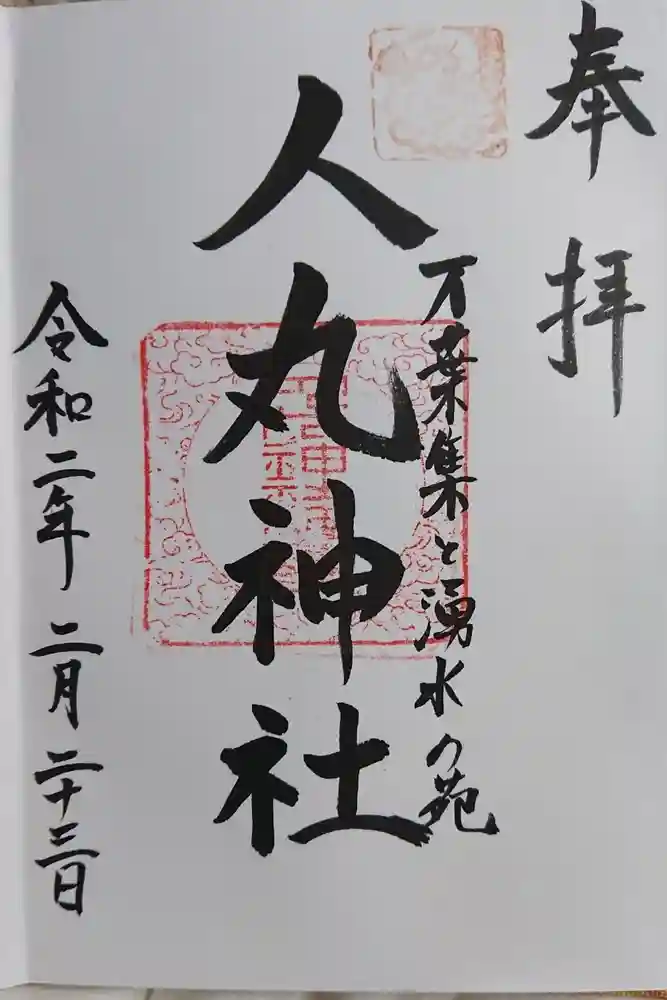 奉拝
万葉集と湧水の苑
人丸神社
令和二年二月二十三日